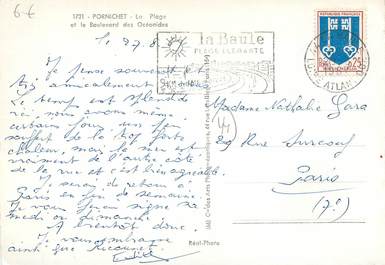 6€
1721 - PORNICHET - La Plage
et le Boulevard des Océanides
le 27.8.
la Baule
PLAGE ÉLÉGANTE
RÉPUBLIQUE FRANÇAISE
0,25
Je pense souvent
très amicalement
Le temps est splendide
ici, nous avons même
certains jours un peu
souffert de la trop forte
chaleur, mais la mer est
vraiment de l'autre côté
de la rue et c'est bien agréable.
Je serai de retour à
Paris en fin de semaine.
Je vous ferai signe sa
medi ou dimanche
A bientôt donc
Je vous embrasse
ainsi que
Madame Nathalie Gara
29 Rue Surcouf
Paris
(7e)
Réal-Photo